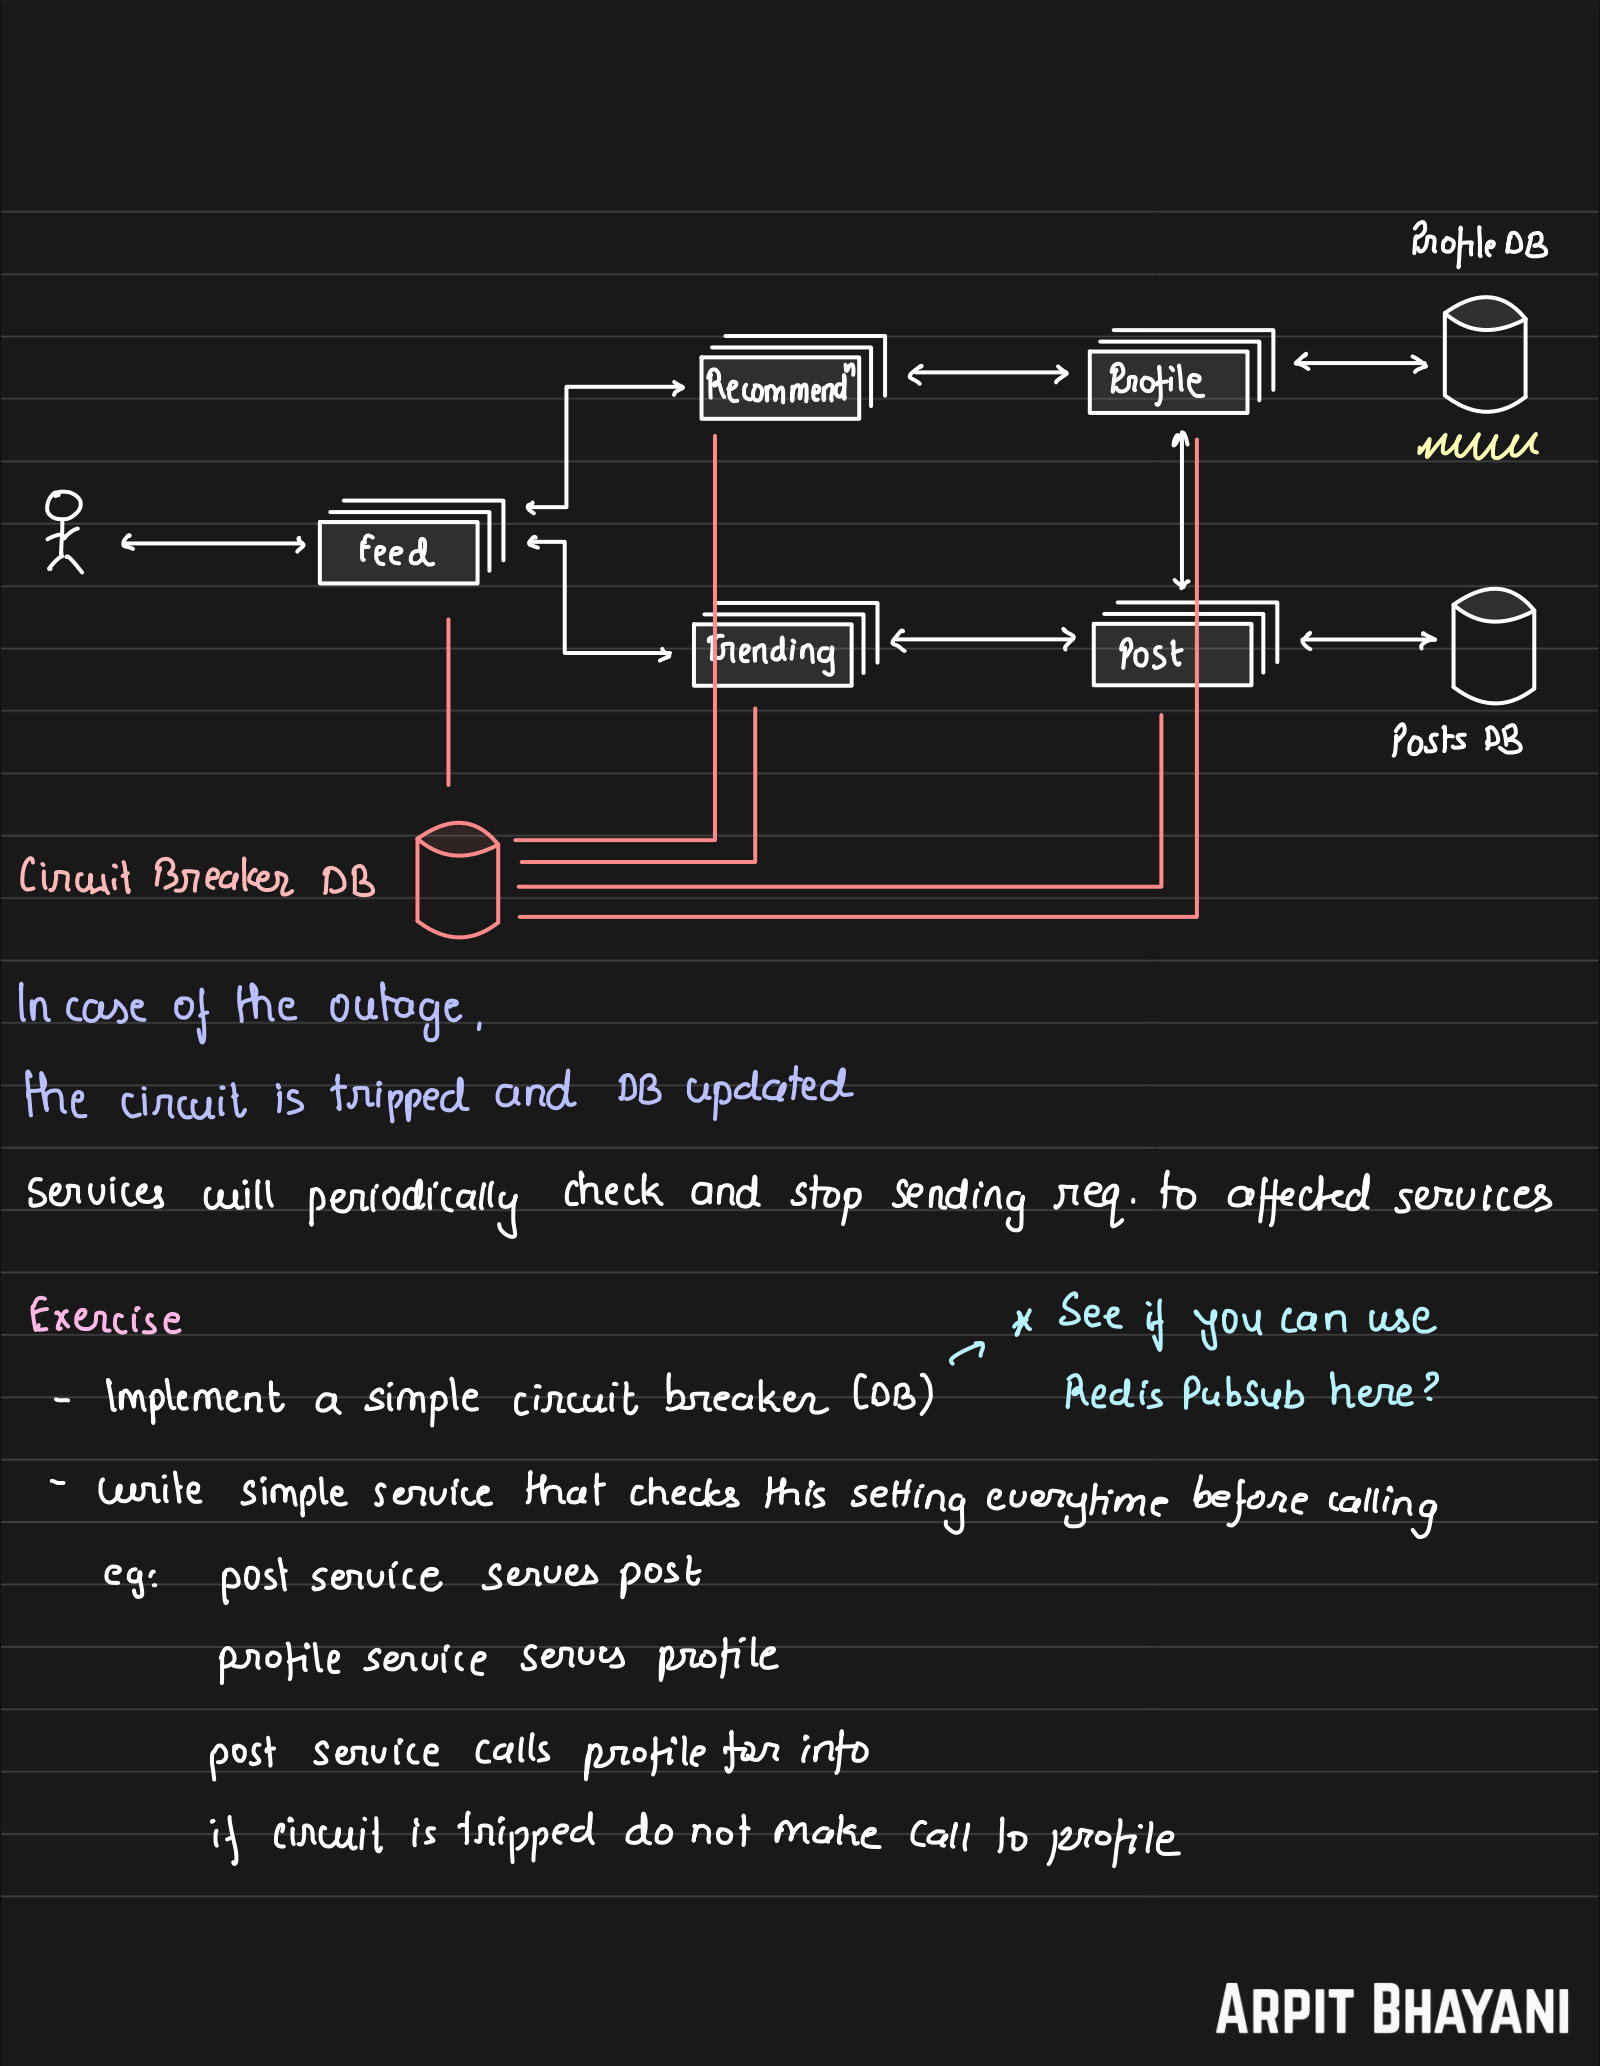 Profile DB
Recommendⁿ
Profile
Feed
Trending
Post
Posts DB
Circuit Breaker DB
In case of the outage,
the circuit is tripped and DB updated
services will periodically check and stop sending req. to affected services
Exercise
* See if you can use
Redis PubSub here?
- Implement a simple circuit breaker (DB)
- write simple service that checks this setting everytime before calling
eg: post service serves post
profile service serves profile
post service calls profile for info
if circuit is tripped do not make call to profile
ARPIT BHAYANI